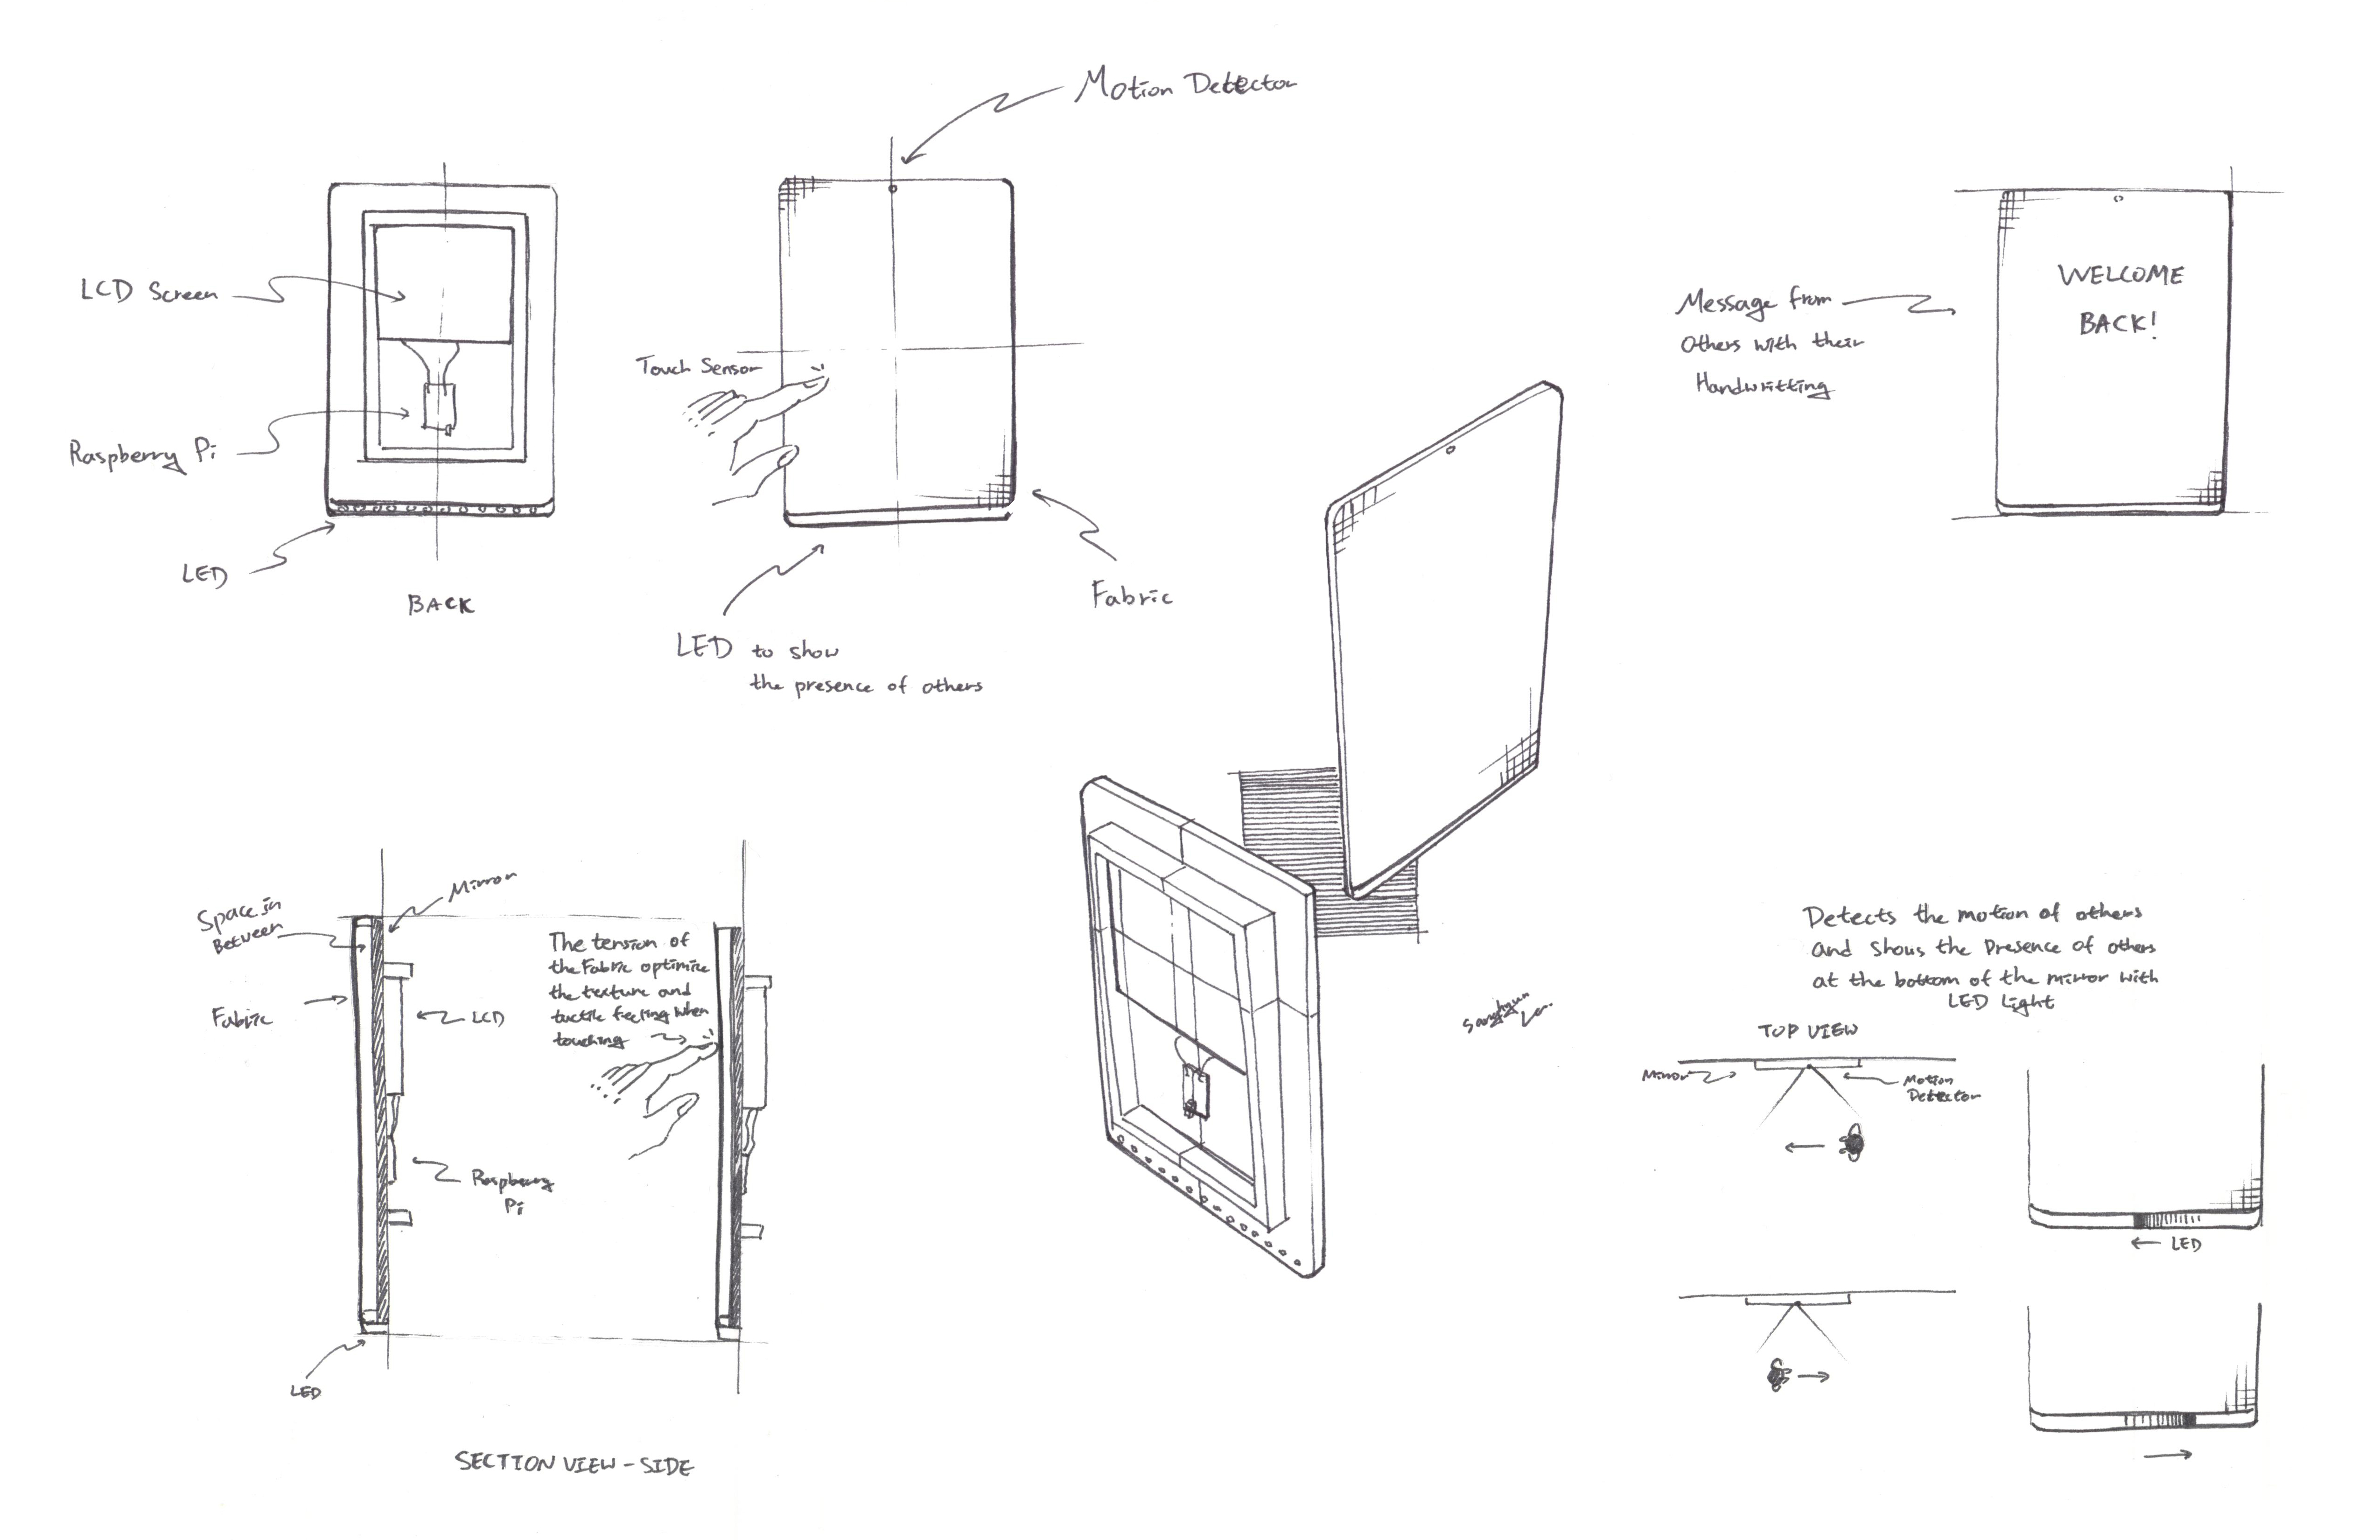 Motion Detector
LCD Screen
Raspberry Pi
LED
BACK
Touch Sensor
Fabric
LED to show
the presence of others
Message from
Others with their
Handwritting
WELCOME
BACK!
Space in
Between
Mirror
Fabric
LCD
Raspberry
Pi
LED
The tension of
the Fabric optimize
the texture and
tactile feeling when
touching
SECTION VIEW - SIDE
Detects the motion of others
and shows the Presence of others
at the bottom of the mirror with
LED Light
TOP VIEW
Mirror
Motion
Detector
LED